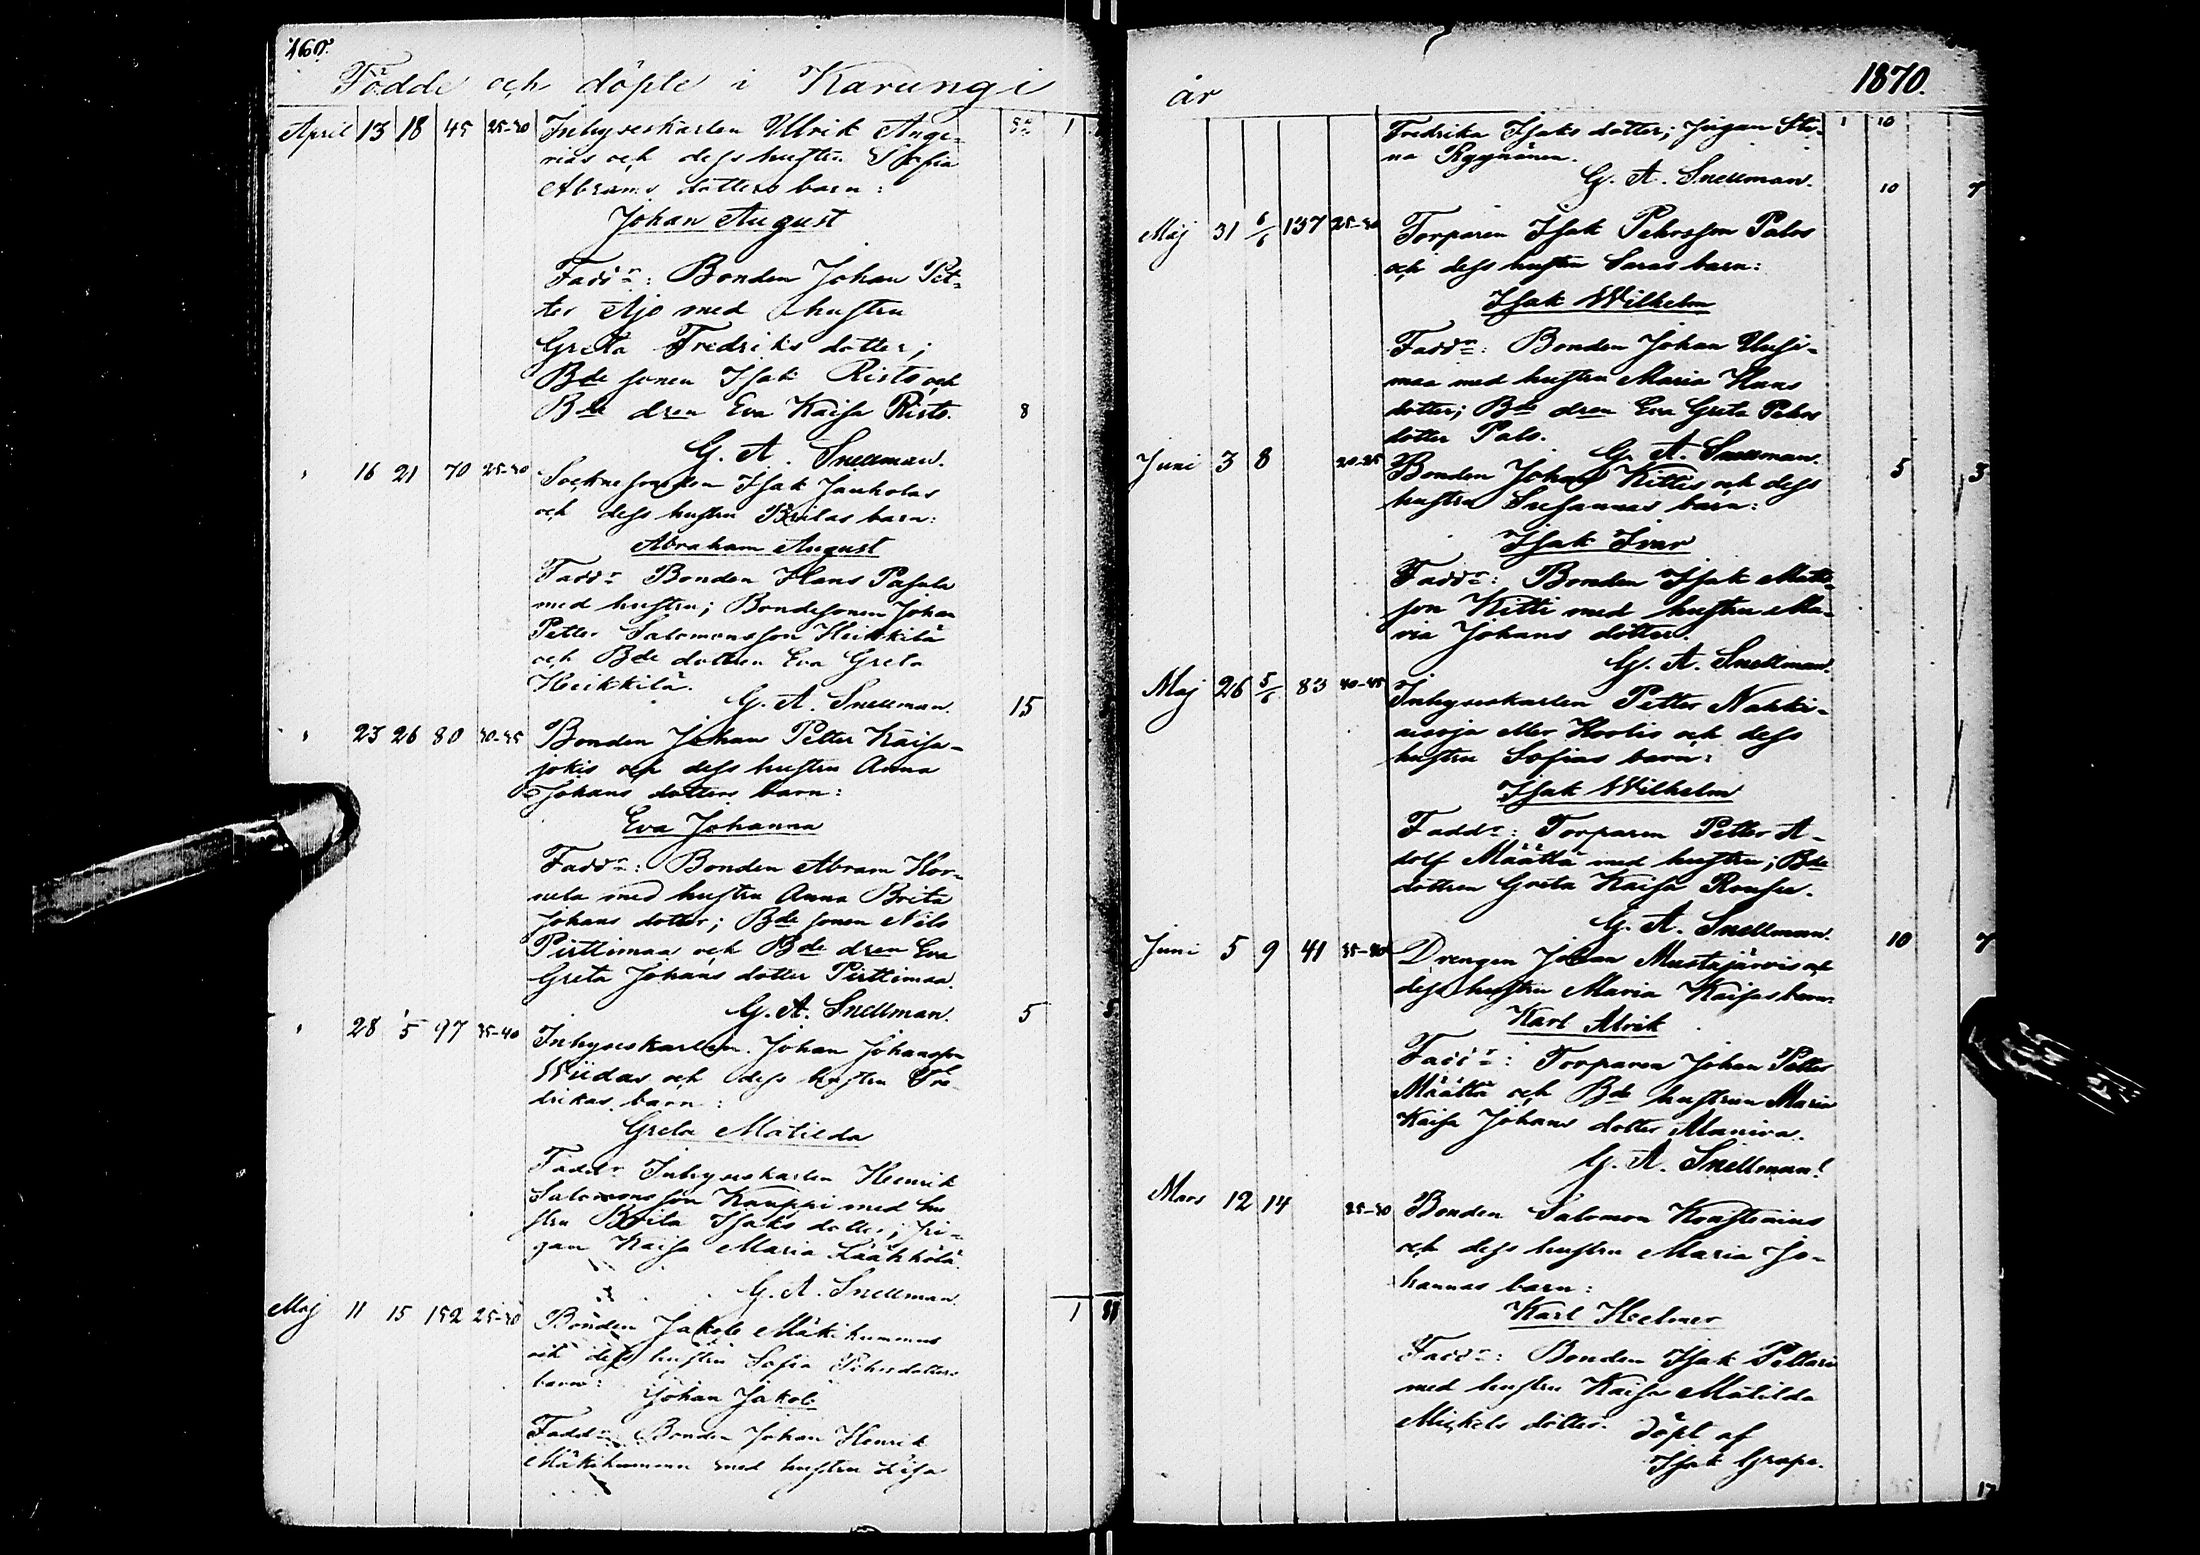 160.
Födde och döpte i Karungi
April 13 18 45 25-30 Inhyseskarlen Ulrik Ange- 1
rias och dess hustru Sofia
Abrams dotters barn:
Johan August
Faddr: Bonden Johan Pet-
ter Ajo med hustru
Greta Fredriks dotter;
Bde sonen Isak Risto och
Bde dren Eva Kaisa Risto. 8
G. A. Snellman.
" 16 21 70 25-30 Isak Jauholas
och dess hustru Britas barn:
Abraham August
Faddr Bonden Hans Pasala
med hustru; Bondesonen Johan
Petter Salomonsson Heikkilä
och Bde dottren Eva Greta
Heikkilä.
G. A. Snellman. 15
" 23 26 80 30-35 Bonden Johan Petter Kaisa-
jokis och dess hustru Anna
Johans dotters barn:
Eva Johanna
Faddr: Bonden Abram Kor-
nela med hustru Anna Brita
Johans dotter; Bde sonen Nils
Pirttimaa och Bde dren Eva
Greta Johans dotter Pirttimaa.
G. A. Snellman. 5 5
" 28 5 97 35-40 Inhyseskarlen Johan Johansson
Wiidas och dess hustru Fre-
drikas barn:
Greta Matilda
Faddr Inhyseskarlen Henrik
Salomonsson Kauppi med hu
stru Brita Isaks dotter; pi-
gan Kaisa Maria Lääkkölä.
G. A. Snellman.
Maj 11 15 152 25-30 Bonden Jakob Mäkikummus 1
och dess hustru Sofia Pehrsdotters
barn: Johan Jakob
Faddr: Bonden Johan Henrik
Mäkikummu med hustru Lisa
år 1870.
Fredrika Isaks dotter; pigan Sti- 1 10
na Ryynänen.
G. A. Snellman. 10 7
Maj 31 6/6 137 25-30 Torparen Isak Pehrsson Palos
och dess hustru Saras barn:
Isak Wilhelm
Faddr: Bonden Johan Uusi-
maa med hustru Maria Hans
dotter; Bde dren Eva Greta Pehrs
dotter Palo.
G. A. Snellman.
Juni 3 8 20-25 Bonden Johan Kittis och dess 5 3
hustru Susannas barn:
Isak Ivar
Faddr: Bonden Isak Matts-
son Kitti med hustru Ma-
ria Johans dotter.
G. A. Snellman.
Maj 26 5/6 83 40-45 Inhyseskarlen Petter Nakki-
aisoja eller Hoolis och dess
hustru Sofias barn:
Isak Wilhelm
Faddr: Torparen Petter A-
dolf Määttä med hustru; Bde
dottren Greta Kaisa Rousu.
G. A. Snellman.
Juni 5 9 41 35-40 Drengen Johan Mustajärvis och 10 7
dess hustru Maria Kaisas barn:
Karl Alrik
Faddr: Torparen Johan Petter
Määttä och Bde hustrun Maria
Kaisa Johans dotter Maniva.
G. A. Snellman.
Mars 12 14 25-30 Bonden Salomon Konstenius
och dess hustru Maria Jo-
hannas barn:
Karl Helmer
Faddr: Bonden Isak Pettari
med hustru Kaisa Matilda
Mickels dotter. döpt af
Isak Grape.
17